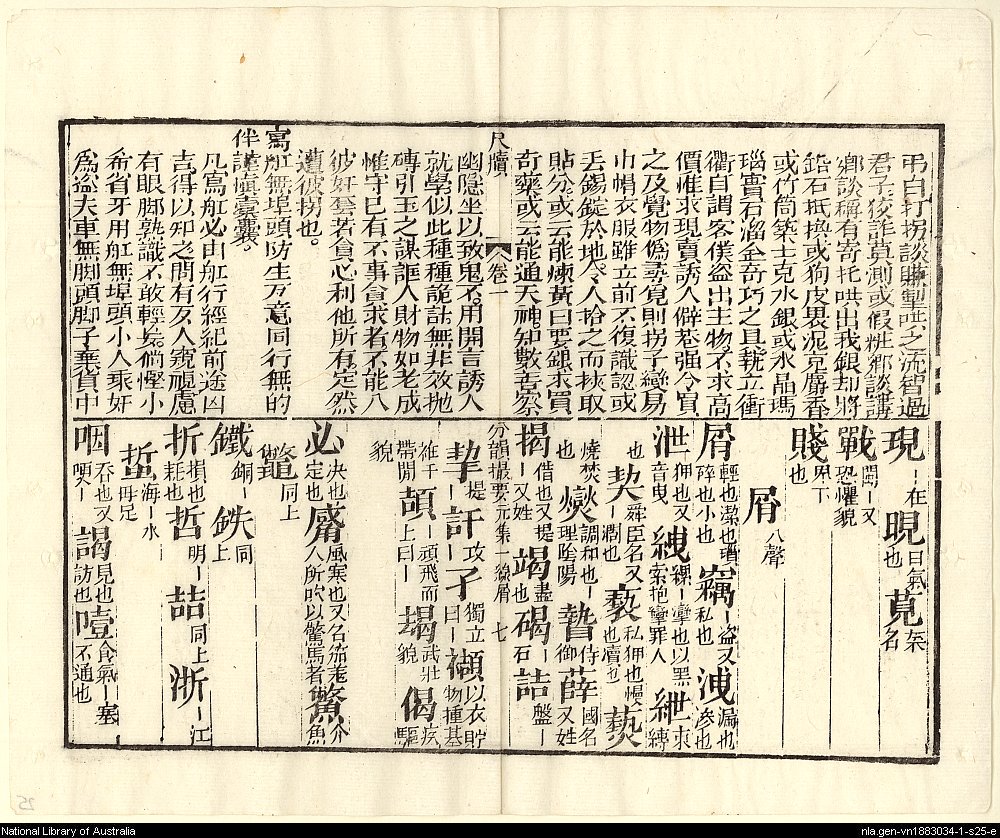 弔白打拐談賺掣哄之流智過
君子狡詐莫測或假粧鄉談講
鄉談稱有寄托哄出我銀却將
鉛石抵換或狗皮畏泥克麝香
或竹筒築土克水銀或水晶瑪
瑙寶石溜金奇巧之具執立衝
衢自謂客僕盜出主物不求高
價惟求現賣誘人僻巷強令買
之及覺物偽尋覓則拐子變易
巾帽衣服雖立前不復識認或
丟錫錠於地令人拾之而挾取
貼分或云能煉黃白要銀求買
奇藥或云能通天神知數善察
尺牘 卷一
幽隱坐以致鬼不用開言誘人
就學似此種種詭詁無非效拋
磚引玉之謀誆人財物如老成
惟守已有不事貪求者不能入
彼奸套若貪心利他所有定然
遭彼拐也。
寫舡無埠頭防生歹意同行無的
伴謹慎囊囊。
凡寫舡必由舡行經紀前途凶
吉得以知之間有歹人窺視慮
有眼脚熟識不敢輕
倘慳小
希省牙用舡無埠頭小人乘奸
為盜夫車無脚頭脚子棄貨中
現 丨在 晛 日氣也 莧 菜名
戰 鬪丨又恐懼貌
賤 界下也
屑 入聲
屑 輕也潔也瑣碎也小也 竊 丨盜又私也 洩 漏也渗也
泄 狎也又音曳 絏 縲丨攣也以黑索拘攣罪人 紲 束縛
也 契 舜臣名又丨濶也 褻 私狎也慢也賣也 爇
燒焚也 燮 調和也丨理陰陽 暬 侍御 薛 國名又姓
揭 借也又提丨又姓 竭 盡也 碣 丨石 詰 盤丨
分韻撮要元集 一線屑 七
挈 提丨 訐 攻丨 孑 獨立曰丨 襭 以衣貯物種基
袵干帶間 頡 丨頏飛而上曰丨 朅 武壯貌 偈 疾驅
貌
必 決也定也 觱 風寒也又名笳羌人所吹以驚馬者 鷩 介魚
鼈 同上
鐵 銅丨 鉄 同上
折 損也耗也 哲 明丨 喆 同上 浙 丨江
蜇 海丨水母足
咽 吞也又哽丨 謁 見也訪也 噎 食氣丨塞不通也
National Library of Australia
nla.gen-vn1883034-1-s25-e
25